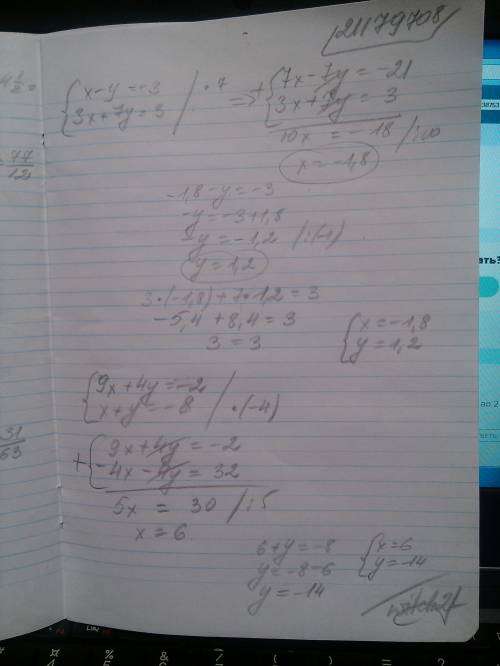 21179708
{x-y=-3 | ·7
{3x+7y=3
=> + {7x-7y=-21
{3x+7y=3
10x = -18 /:10
x=-1,8
-1,8-y=-3
-y=-3+1,8
-y=-1,2 /:(-1)
y=1,2
3·(-1,8)+7·1,2=3
-5,4+8,4=3
3=3
{x=-1,8
{y=1,2
{9x+4y=-2
{x+y=-8 / ·(-4)
+ {9x+4y=-2
{-4x-4y=32
5x = 30 /:5
x=6
6+y=-8
y=-8-6
y=-14
{x=6
{y=-14
31
63
77
12